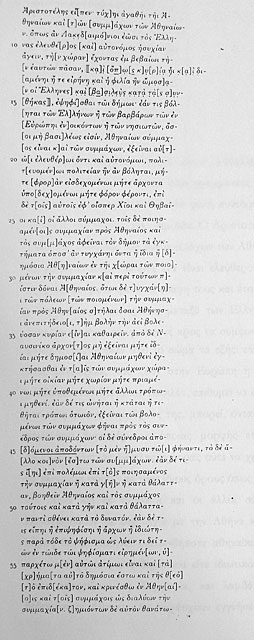 Ἀριστοτέλης εἶ[πεν· τύχ]ηι ἀγαθῆι τῆι Ἀ-
θηναίων καὶ [τ]ῶν [συμμ]άχων τῶν Ἀθηναίω-
ν. ὅπως ἂν Λακεδ[αιμό]νιοι ἐῶσι τὸς Ἕλλη-
10 νας ἐλευθέ[ρ]ος [καὶ] αὐτονόμος ἡσυχίαν
ἄγειν, τὴ[ν χώραν] ἔχοντας ἐμ βεβαίωι τὴ-
[ν ἑαυτῶν πᾶσαν,
15
[θήκας], ἐψηφί[σ]θαι τῶι δήμωι· ἐάν τις βόλ-
[ηται τῶν Ἑλ]λήνων ἢ τῶν βαρβάρων τῶν ἐν
[Εὐρώπηι ἐν]οικόντων ἢ τῶν νησιωτῶν, ὅσ-
[οι μὴ βασι]λέως εἰσίν, Ἀθηναίων σύμμαχ-
ος εἶναι κ]αὶ τῶν συμμάχων, ἐξεῖναι αὐ[τ]-
20 ῶ[ι ἐλευθέρ]ωι ὄντι καὶ αὐτονόμωι, πολι-
τ[ευομέν]ωι πολιτείαν ἣν ἂν βόληται, μή-
τε [φρορ]ὰν εἰσδεχομένωι μήτε ἄρχοντα
ὑπο[δεχ]ομένωι μήτε φόρον φέροντι, ἐπὶ
δὲ τ[οῖς] αὐτοῖς ἐφ' οἷσπερ Χῖοι καὶ Θηβαῖ-
25 οι κα[ὶ] οἱ ἄλλοι σύμμαχοι. τοῖς δὲ ποιησ-
αμέν[οι]ς συμμαχίαν πρὸς Ἀθηναίος καὶ
τὸς συμ[μ]άχος ἀφεῖναι τὸν δῆμον τὰ ἐγκ-
τήματα ὁπόσ' ἂν τυγχάνηι ὄντα ἢ ἴδια ἢ [δ]-
ημόσια Ἀθ[η]ναίων ἐν τῆι χ[ώραι τῶν ποιο]-
30 μένων τὴν συμμαχίαν κ[αὶ περὶ τούτων π]-
ίστιν δόναι Ἀ[θηναίος. ὅτωι δὲ τ]υγχάν[η]-
ι τῶν πόλεων [τῶν ποιομένων] τὴν συμμαχ-
ίαν πρὸς Ἀθην[αίος σ]τῆλαι ὄσαι Ἀθήνησ-
ι ἀνεπιτήδειο[ι, τ]ὴμ βολὴν τὴν ἀεὶ βολε-
35 ύοσαν κυρίαν ε[ἶν]αι καθαιρεῖν. ἀπὸ δὲ Ν-
αυσινίκο ἄρχον[τ]ος μὴ ἐξεῖναι μήτε ἰδ-
ίαι μήτε δημοσ[ί]αι Ἀθηναίων μηθενὶ ἐγ-
κτήσασθαι ἐν τ[α]ῖς τῶν συμμάχων χώρα-
ι μήτε οἰκίαν μήτε χωρίον μήτε πριαμέ-
40 νωι μήτε ὑποθεμένωι μήτε ἄλλωι τρόπω-
ι μηθενί. ἐὰν δέ τις ὠνῆται ἢ κτᾶται ἢ τι-
θῆται τρόπωι ὁτωιοῦν, ἐξεῖναι τῶι βολο-
μένωι τῶν συμμάχων φῆναι πρὸς τὸς συν-
έδρος τῶν συμμάχων· οἱ δὲ σύνεδροι ἀπο-
45 [δ]όμενοι ἀποδόντων [τὸ μὲν ἥ]μυσυ τῶ[ι] φήναντι, τὸ δὲ ἄ-
[λλο κοι]νὸν [ἔσ]τω τῶν συ[μμ]άχων. ἐὰν δέ τι-
ς ἴ[ηι] ἐπὶ πολέμωι ἐπὶ τ[ὸ]ς ποιησαμένος
τὴν συμμαχίαν ἢ κατὰ γ[ῆ]ν ἢ κατὰ θάλαττ-
αν, βοηθεῖν Ἀθηναίος καὶ τὸς συμμάχος
50 τούτοις καὶ κατὰ γῆν καὶ κατὰ θάλαττα-
ν παντὶ σθένει κατὰ τὸ δυνατόν. ἐὰν δέ τ-
ις εἴπηι ἢ ἐπιψηφίσηι ἢ ἄρχων ἢ ἰδιώτη-
ς παρὰ τόδε τὸ ψήφισμα ὡς λύειν τι δεῖ τ-
ῶν ἐν τῶιδε τῶι ψηφίσματι εἰρημέν[ων, ὑ]-
55 παρχέτω μ[ὲν] αὐτῶι ἀτίμωι εἶναι καὶ [τὰ]
[χρ]ήμα[τα αὐ]τῶ δημόσια ἔστω καὶ τῆς θ[εο]
[τ]ὸ ἐπιδ[έκα]τον, καὶ κρινέσθω ἐν Ἀθην[αί]-
[ο]ις καὶ τ[οῖς] συμμάχοις ὡς διαλύων τὴν
συμμαχία[ν. ζ]ημιόντων δὲ αὐτὸν θανάτω-